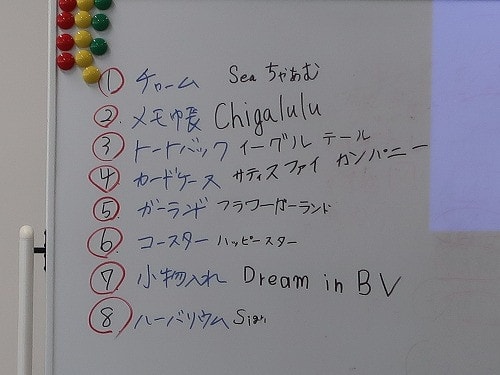 ① チャーム Sea ちゃあむ
② メモ帳 Chigalulu
③ トートバック イーグル テール
④ カードケース サティスファイ カンパニー
⑤ ガーランド フラワーガーランド
⑥ コースター ハッピースター
⑦ 小物入れ Dream in BV
⑧ ハーバリウム